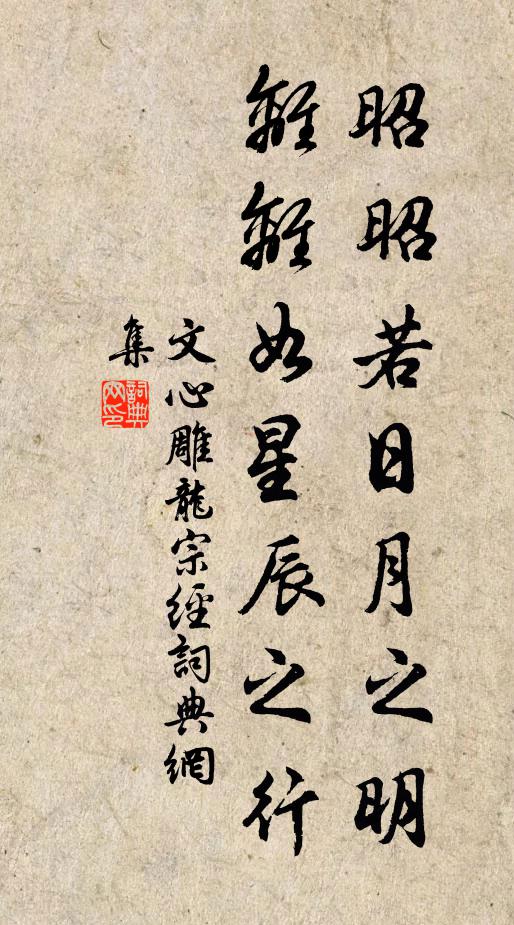 昭昭若日月之明
離離如星辰之行
文心雕龍宗經詞典網
集
詞典
网印